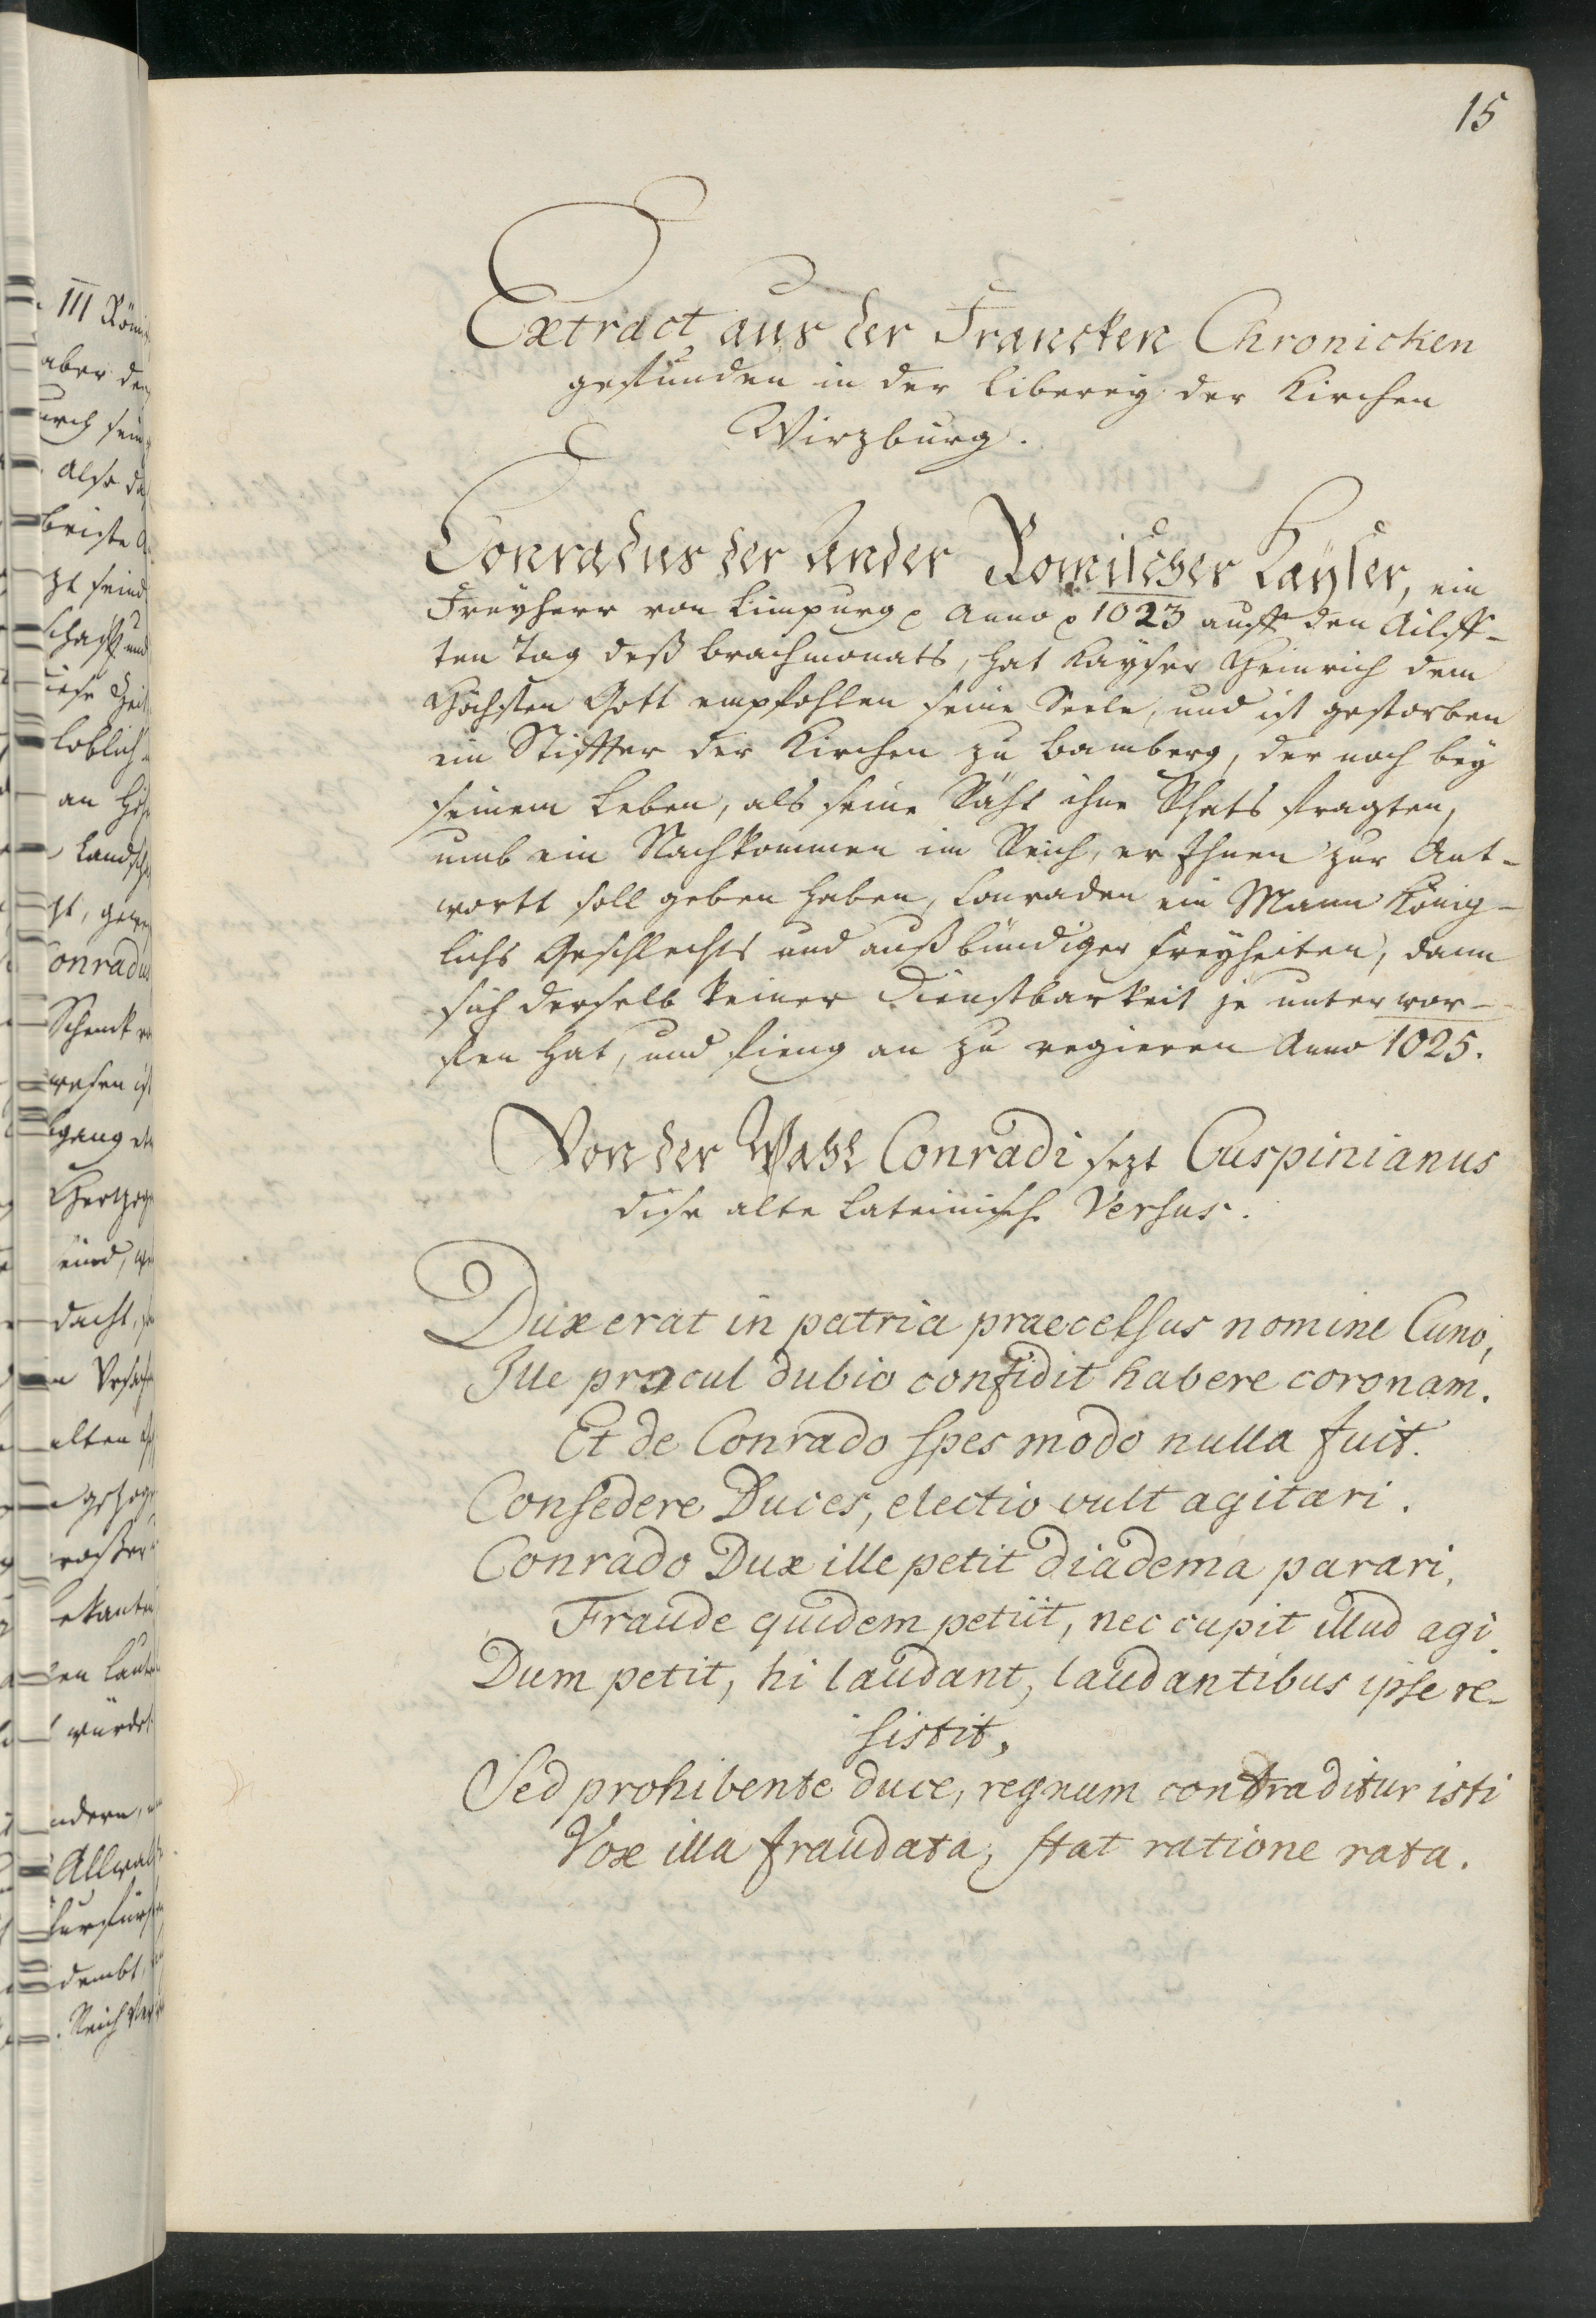 15
Extract aus der Francken Chronicken
gefunden in der Liberey der Kirchen
Wirzburg.
Conradus der Ander Romischer Kayser, ein
Freyherr von Limpurg Anno 1023 auff den Ailff-
ten Tag deß brachmonats, hat Kayser Heinrich dem
Höchsten Gott empfohlen seine Seele, und ist gestorben
ein Stiffter der Kirchen zu Bamberg, der noch bey
seinem Leben, als seine Räht ihne Rhats fragten,
umb ein Nachkommen im Reich, er Ihnen zur Ant-
wortt soll geben haben, Conraden ein Mann König-
lichs Geschlechts und außbündiger freyheiten, dann
sich derselb keiner Dienstbarkeit je unterwor-
fen hat, und fieng an zu regieren Anno 1025.
Von der Wahl Conradi sezt Cuspinianus
dise alte Lateinisch Versus.
Dux erat in patria praecelsus nomine Cuno,
Ille procul dubio confidit habere coronam.
Et de Conrado spes modo nulla fuit.
Consedere Duces, electio vult agitari.
Conrado Dux ille petit diadema parari,
Fraude quidem petiit, nec cupit illud agi.
Dum petit, hi laudant, laudantibus ipse re-
sistit,
Sed prohibente duce, regnum contraditur isti
Vox illa fraudata, stat ratione rata.
III Röm
aber
durch sein
Also
schafft und
loblich
an
Land
Conradus
Schenck
wesen ist
Hertzog
dacht,
alten
würde
Allwa
Reich